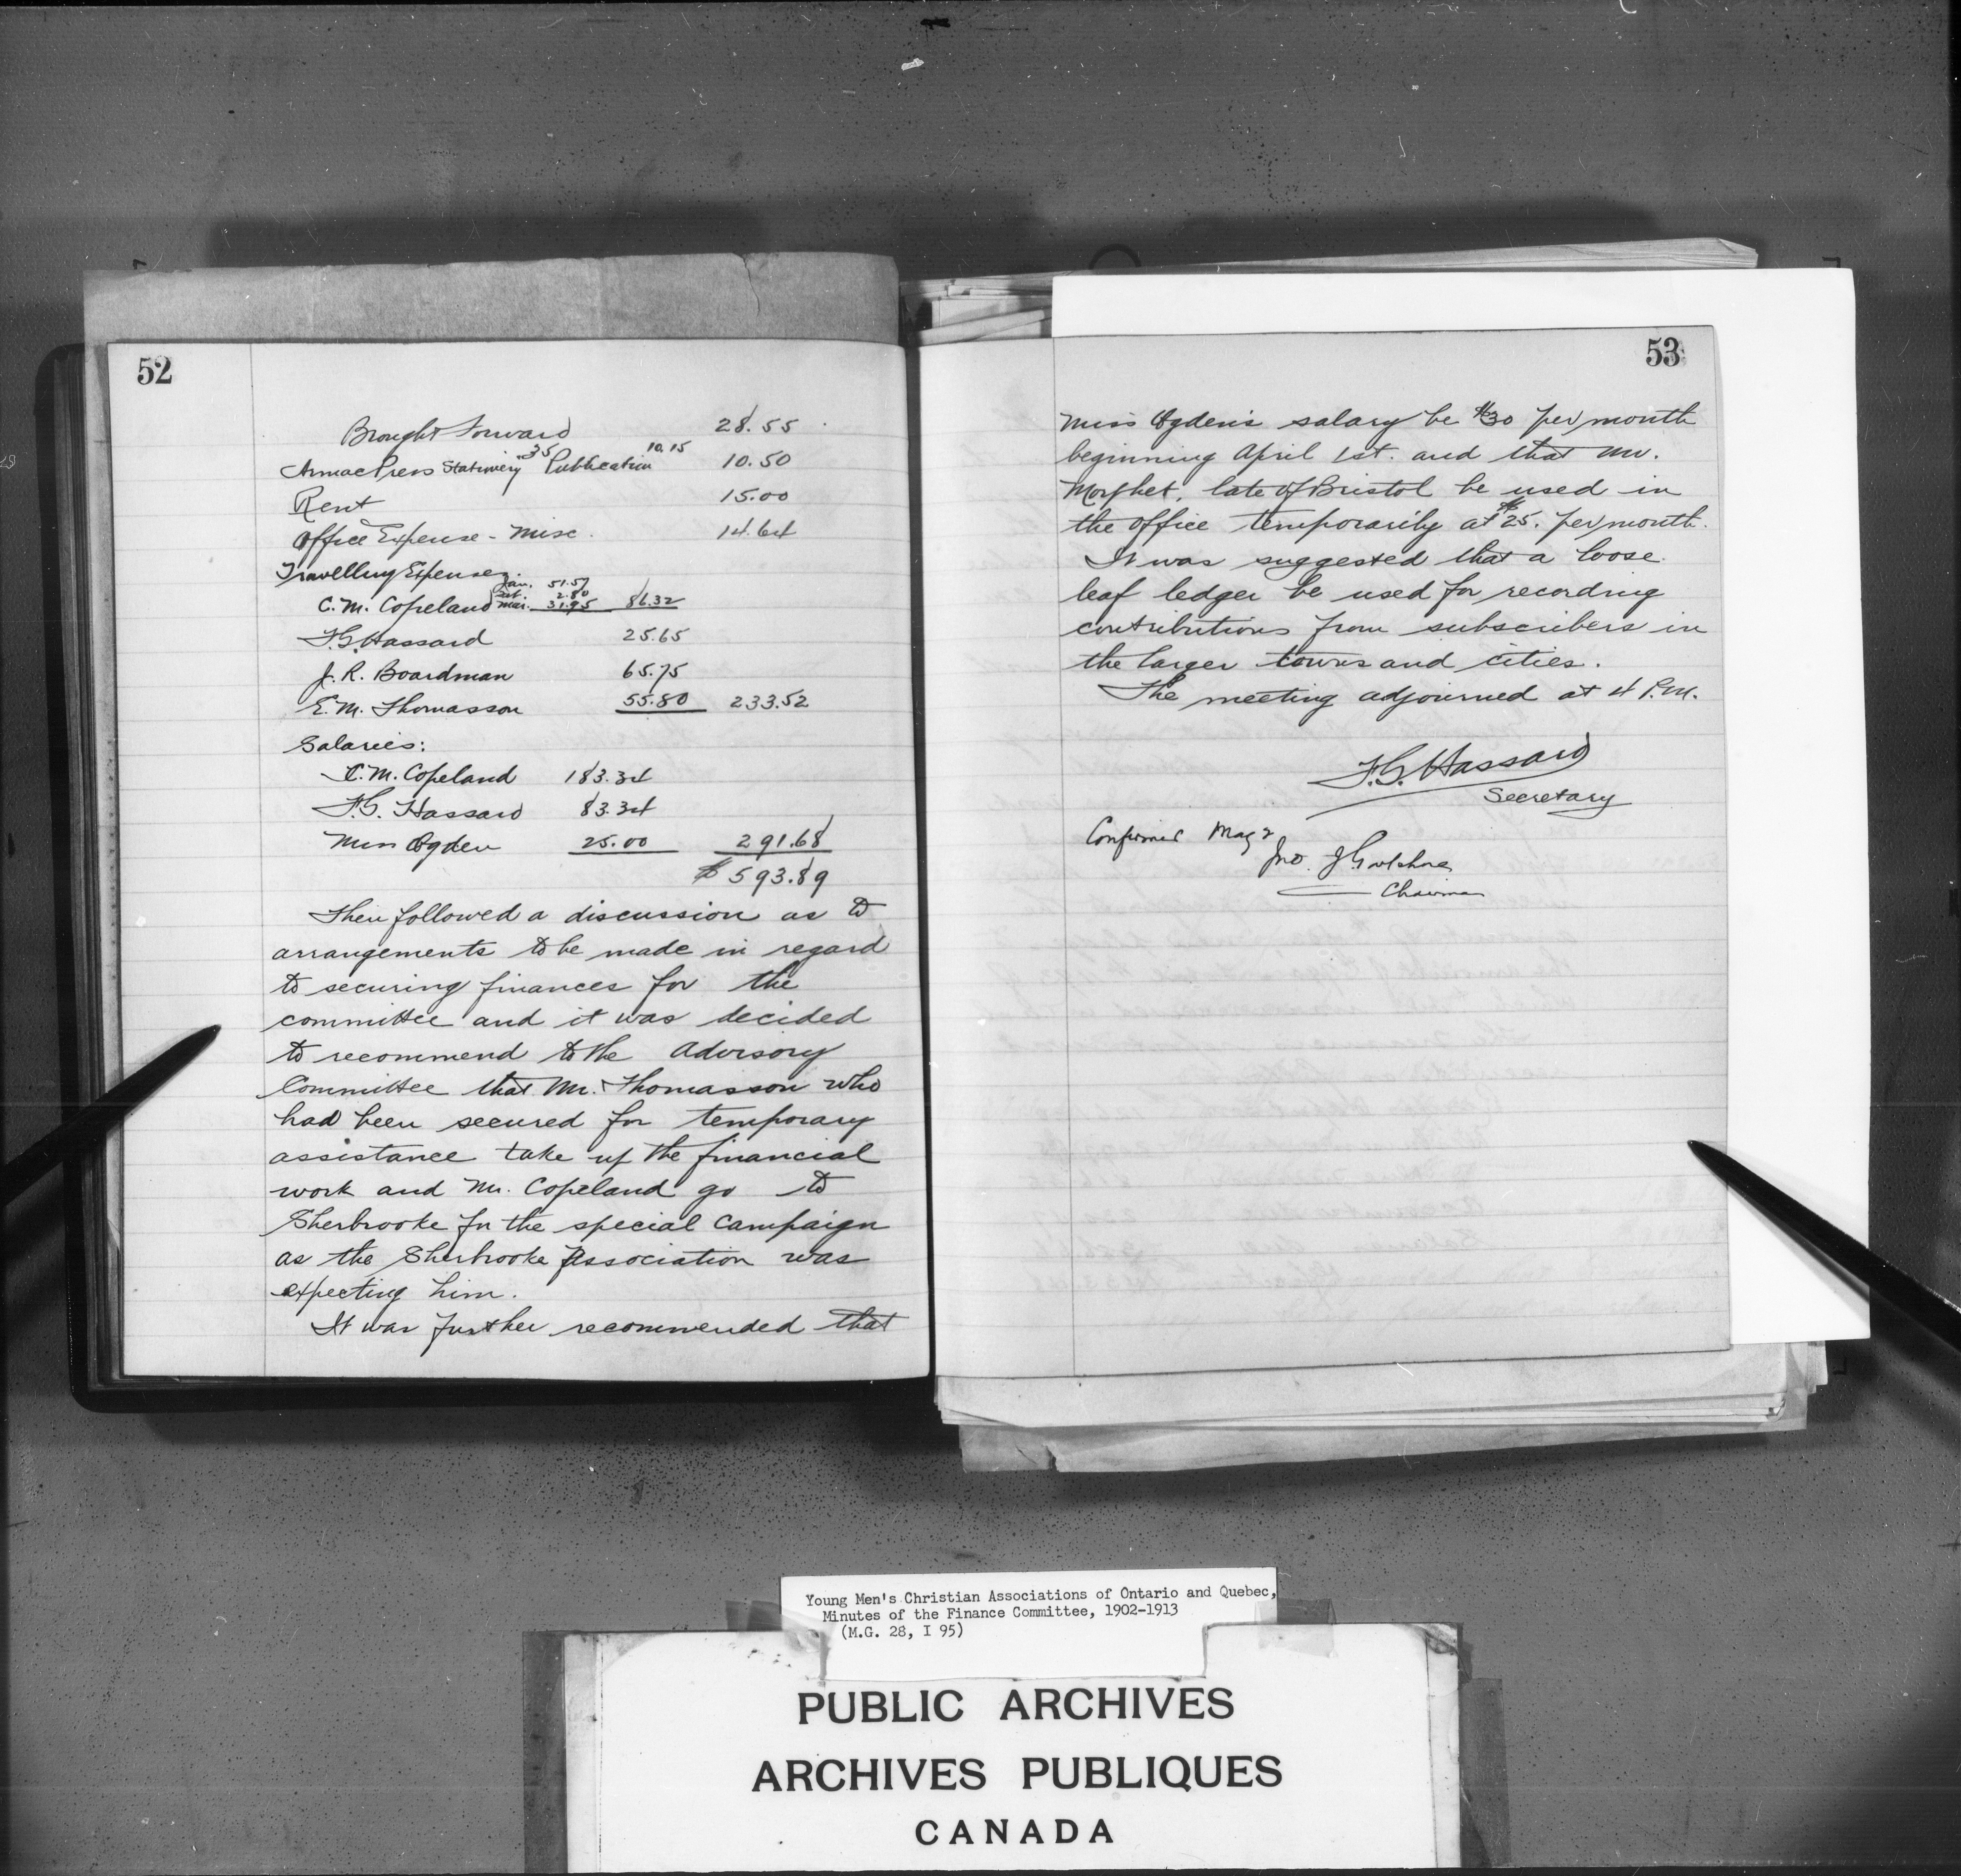 52
Brought Forward 28.55
Armac Press Stationery .35 Publication 10.15 10.50
Rent 15.00
Office Expense - Misc. 14.64
Travelling Expenses.
C. M. Copeland Jan. 51.57 Feb. 2.80 Mar. 31.95 86.32
F.G. Hassard 25.65
J. R. Boardman 65.75
E. M. Thomasson 55.80 233.52
Salaries:
C. M. Copeland 183.34
F.G. Hassard 83.34
Miss Ogden 25.00 291.68
$ 593.89
Then followed a discussion as to
arrangements to be made in regard
to securing finances for the
committee and it was decided
to recommend to the Advisory
Committee that Mr. Thomasson who
had been secured for temporary
assistance take up the financial
work and Mr. Copeland go to
Sherbrooke for the special campaign
as the Sherbrooke Association was
expecting him.
It was further recommended that
53
Miss Ogden's salary be $30 per month
beginning April 1st. and that Mr.
late of Bristol be used in
the office temporarily at $25. per month.
It was suggested that a loose
leaf ledger be used for recording
contributions from subscribers in
the larger towns and cities.
The meeting adjourned at 4 P.M.
F.G. Hassard
Secretary
Confirmed May 2
Jno. J.
Chairman
Young Men's Christian Associations of Ontario and Quebec,
Minutes of the Finance Committee, 1902-1913
(M.G. 28, I 95)
PUBLIC ARCHIVES
ARCHIVES PUBLIQUES
CANADA